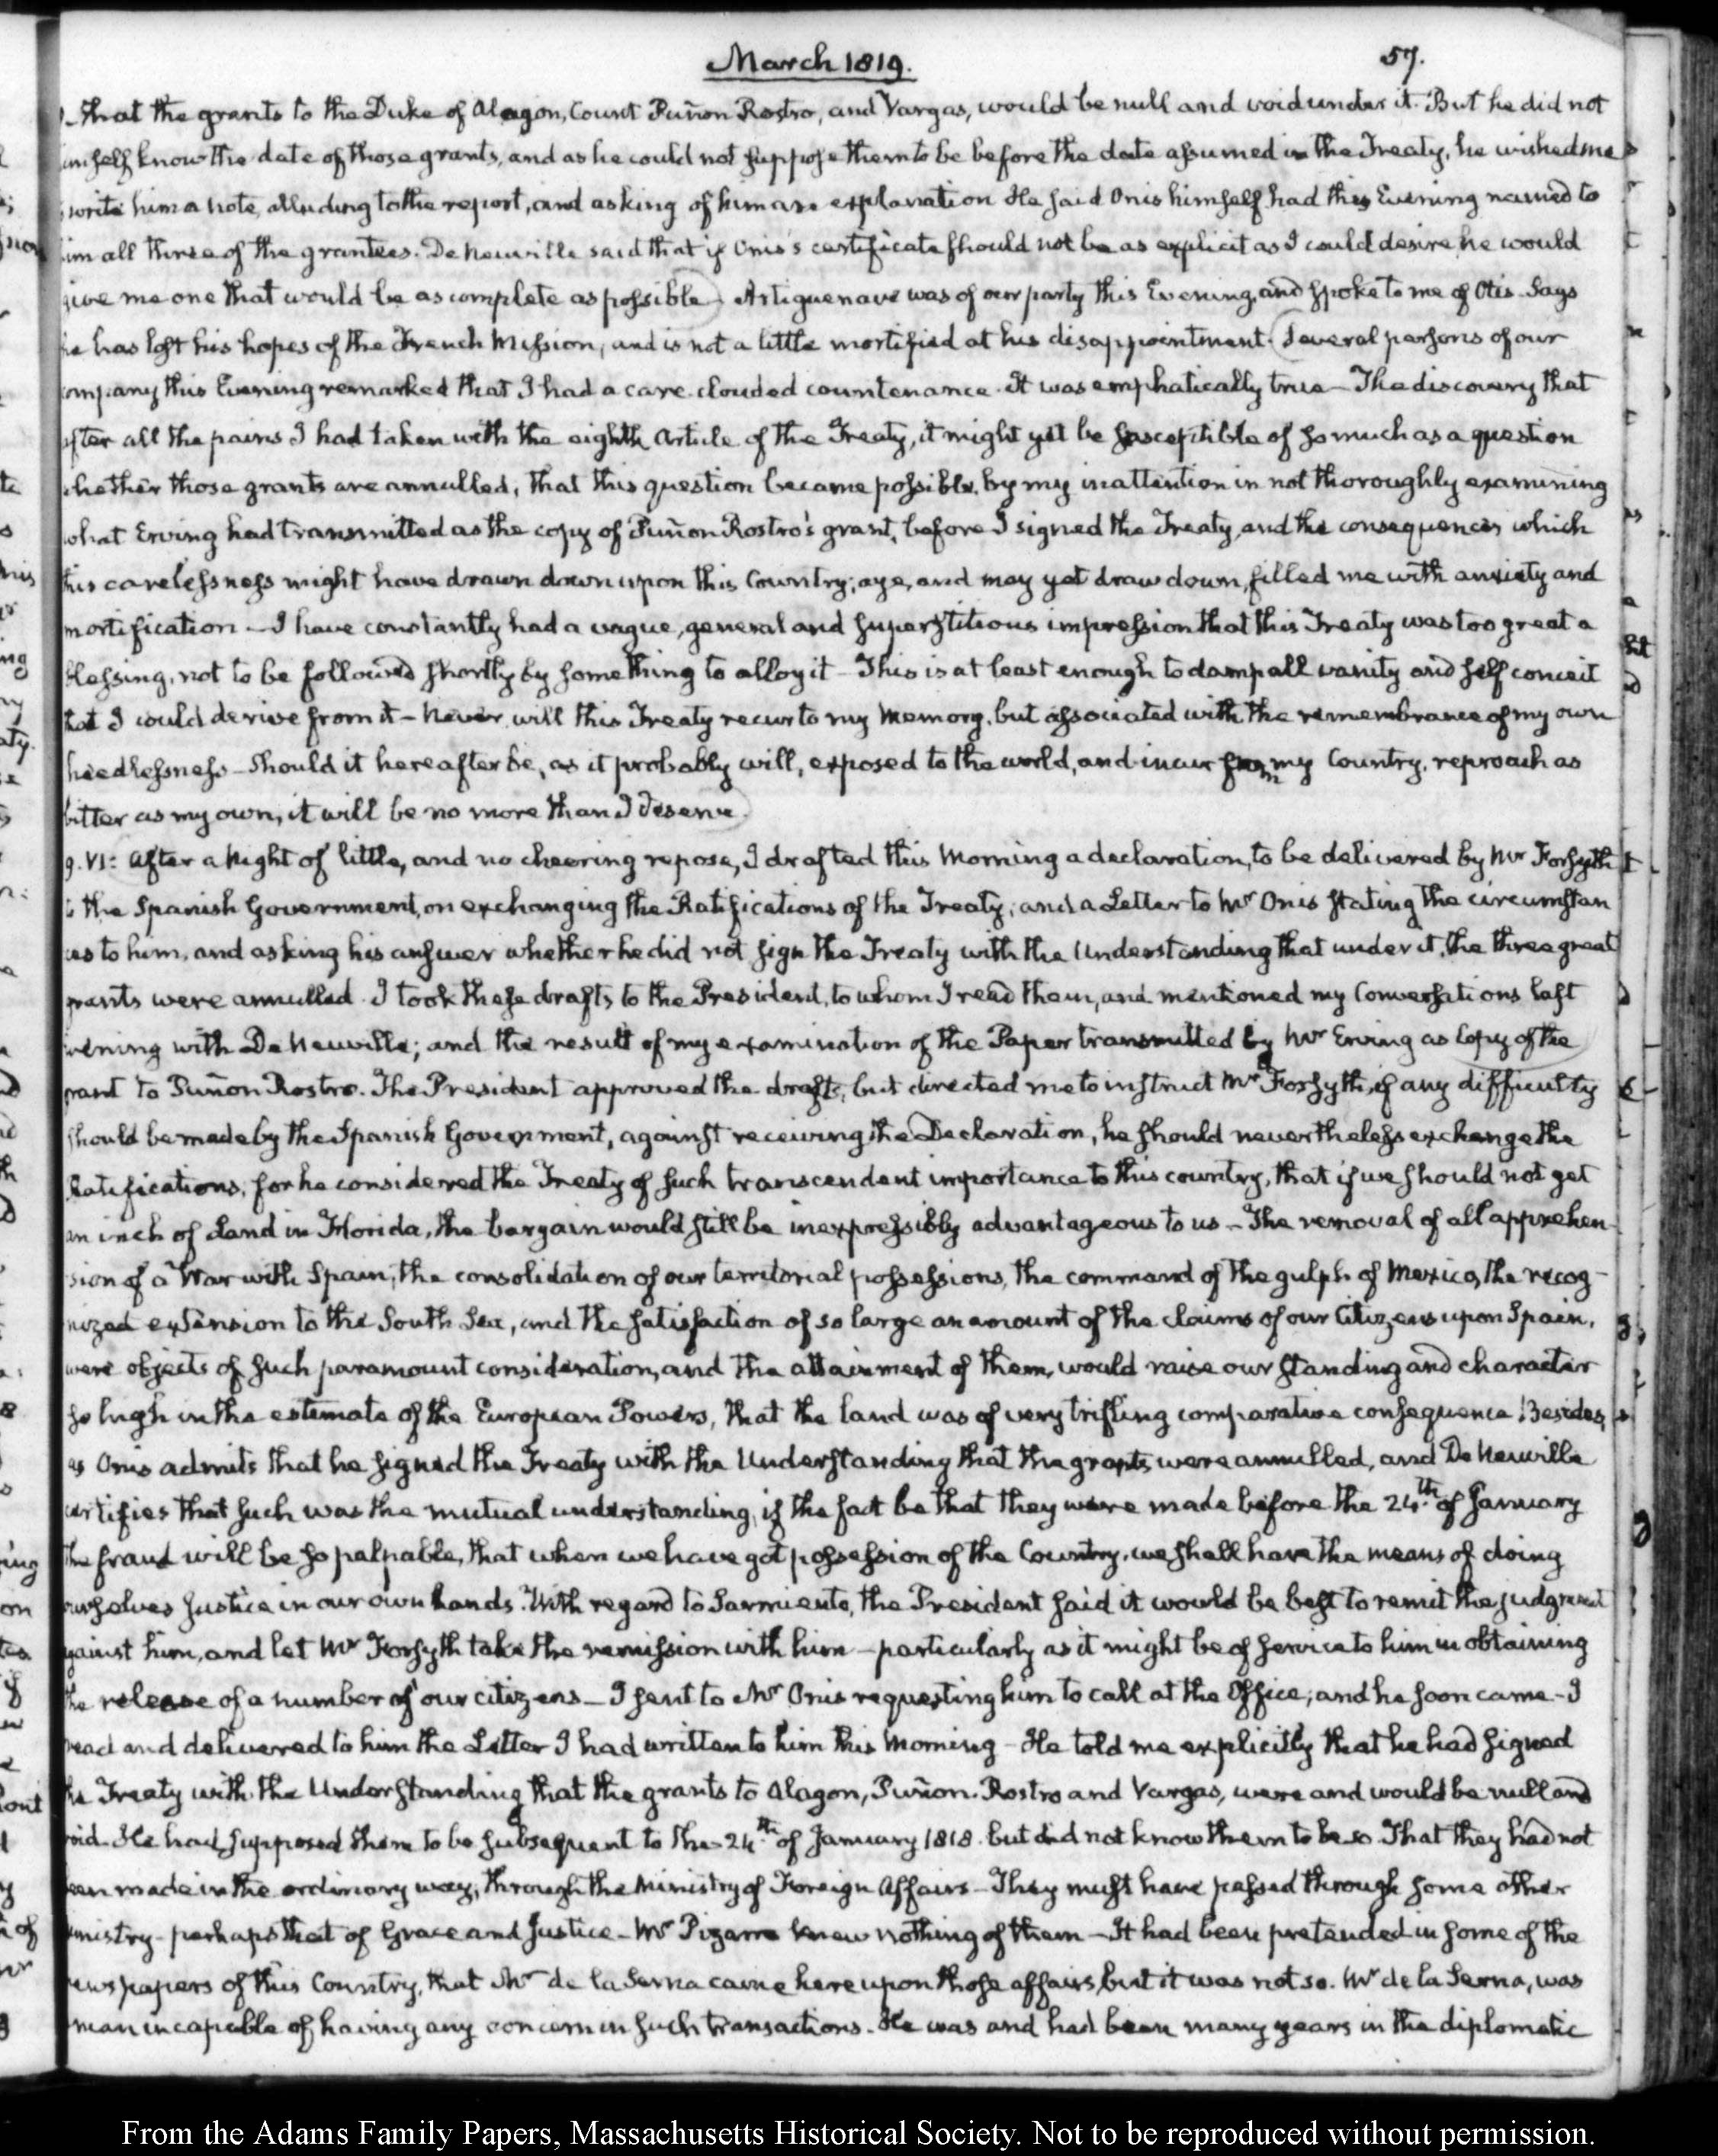 March 1819.
57.
that the grants to the Duke of Alagon, Count Puñon Rostro, and Vargas, would be null and void under it. But he did not
himself know the date of those grants, and as he could not suppose them to be before the date assumed in the Treaty, he wished me
write him a note, alluding to the report, and asking of him an explanation He said Onis himself had this Evening named to
him all three of the grantees. De Neuville said that if Onis's certificate should not be as explicit as I could desire, he would
give me one that would be as complete as possible) Artiguenave was of our party this Evening, and spoke to me of Otis. Says
he has lost his hopes of the French Mission, and is not a little mortified at his disappointment. (Several persons of our
company this Evening remarked that I had a care-clouded countenance. It was emphatically true — The discovery that
after all the pains I had taken with the eighth Article of the Treaty, it might yet be susceptible of so much as a question
whether those grants are annulled; that this question became possible, by my inattention in not thoroughly examining
what Erving had transmitted as the copy of Puñon Rostro's grant, before I signed the Treaty, and the consequences which
this carelessness might have drawn down upon this Country; aye, and may yet draw down, filled me with anxiety and
mortification — I have constantly had a vague, general and superstitious impression that this Treaty was too great a
blessing, not to be followed shortly by something to alloy it — This is at least enough to damp all vanity and self conceit
that I could derive from it — Never will this Treaty recur to my Memory, but associated with the remembrance of my own
heedlessness — Should it hereafter be, as it probably will, exposed to the world, and incur from my Country, reproach as
bitter as my own, it will be no more than I deserve.)
9. VI: After a Night of little, and no cheering repose, I drafted this Morning a declaration, to be delivered by Mr Forsyth
to the Spanish Government, on exchanging the Ratifications of the Treaty; and a Letter to Mr Onis stating the circumstan
ces to him, and asking his answer whether he did not sign the Treaty with the Understanding that under it, the three great
grants were annulled. I took these drafts to the President, to whom I read them, and mentioned my Conversations last
Evening with De Neuville; and the result of my examination of the Paper transmitted by Mr Erving as Copy of the
grant to Puñon Rostro. The President approved the drafts, but directed me to instruct Mr Forsyth, if any difficulty
should be made by the Spanish Government, against receiving the Declaration, he should nevertheless exchange the
Ratifications, for he considered the Treaty of such transcendent importance to this country, that if we should not get
an inch of Land in Florida, the bargain would still be inexpressibly advantageous to us — The removal of all apprehen-
sion of a War with Spain; the consolidation of our territorial possessions, the command of the gulph of Mexico, the recog-
nized extension to the South Sea, and the satisfaction of so large an amount of the claims of our Citizens upon Spain,
were objects of such paramount consideration, and the attainment of them, would raise our standing and character
so high in the estimate of the European Powers, that the land was of very trifling comparative consequence. Besides,
as Onis admits that he signed the Treaty with the Understanding that the grants were annulled, and De Neuville
certifies that such was the mutual understanding, if the fact be that they were made before the 24th. of January
the fraud will be so palpable, that when we have got possession of the Country, we shall have the means of doing
ourselves Justice in our own hands. With regard to Sarmiento, the President said it would be best to remit the judgment
against him, and let Mr Forsyth take the remission with him — particularly as it might be of service to him in obtaining
the release of a number of our citizens — I sent to Mr Onis requesting him to call at the Office; and he soon came — I
read and delivered to him the Letter I had written to him this Morning — He told me explicitly that he had signed
the Treaty with the Understanding that the grants to Alagon, Puñon-Rostro and Vargas, were and would be null and
void. He had supposed them to be subsequent to the 24th. of January 1818. but did not know them to be so. That they had not
been made in the ordinary way, through the Ministry of Foreign Affairs — They must have passed through some other
Ministry — perhaps that of Grace and Justice — Mr Pizarro knew nothing of them — It had been pretended in some of the
newspapers of this Country, that Mr de la Serna came here upon those affairs, but it was not so. Mr de la Serna, was
man incapable of having any concern in such transactions. He was and had been many years in the diplomatic
From the Adams Family Papers, Massachusetts Historical Society. Not to be reproduced without permission.